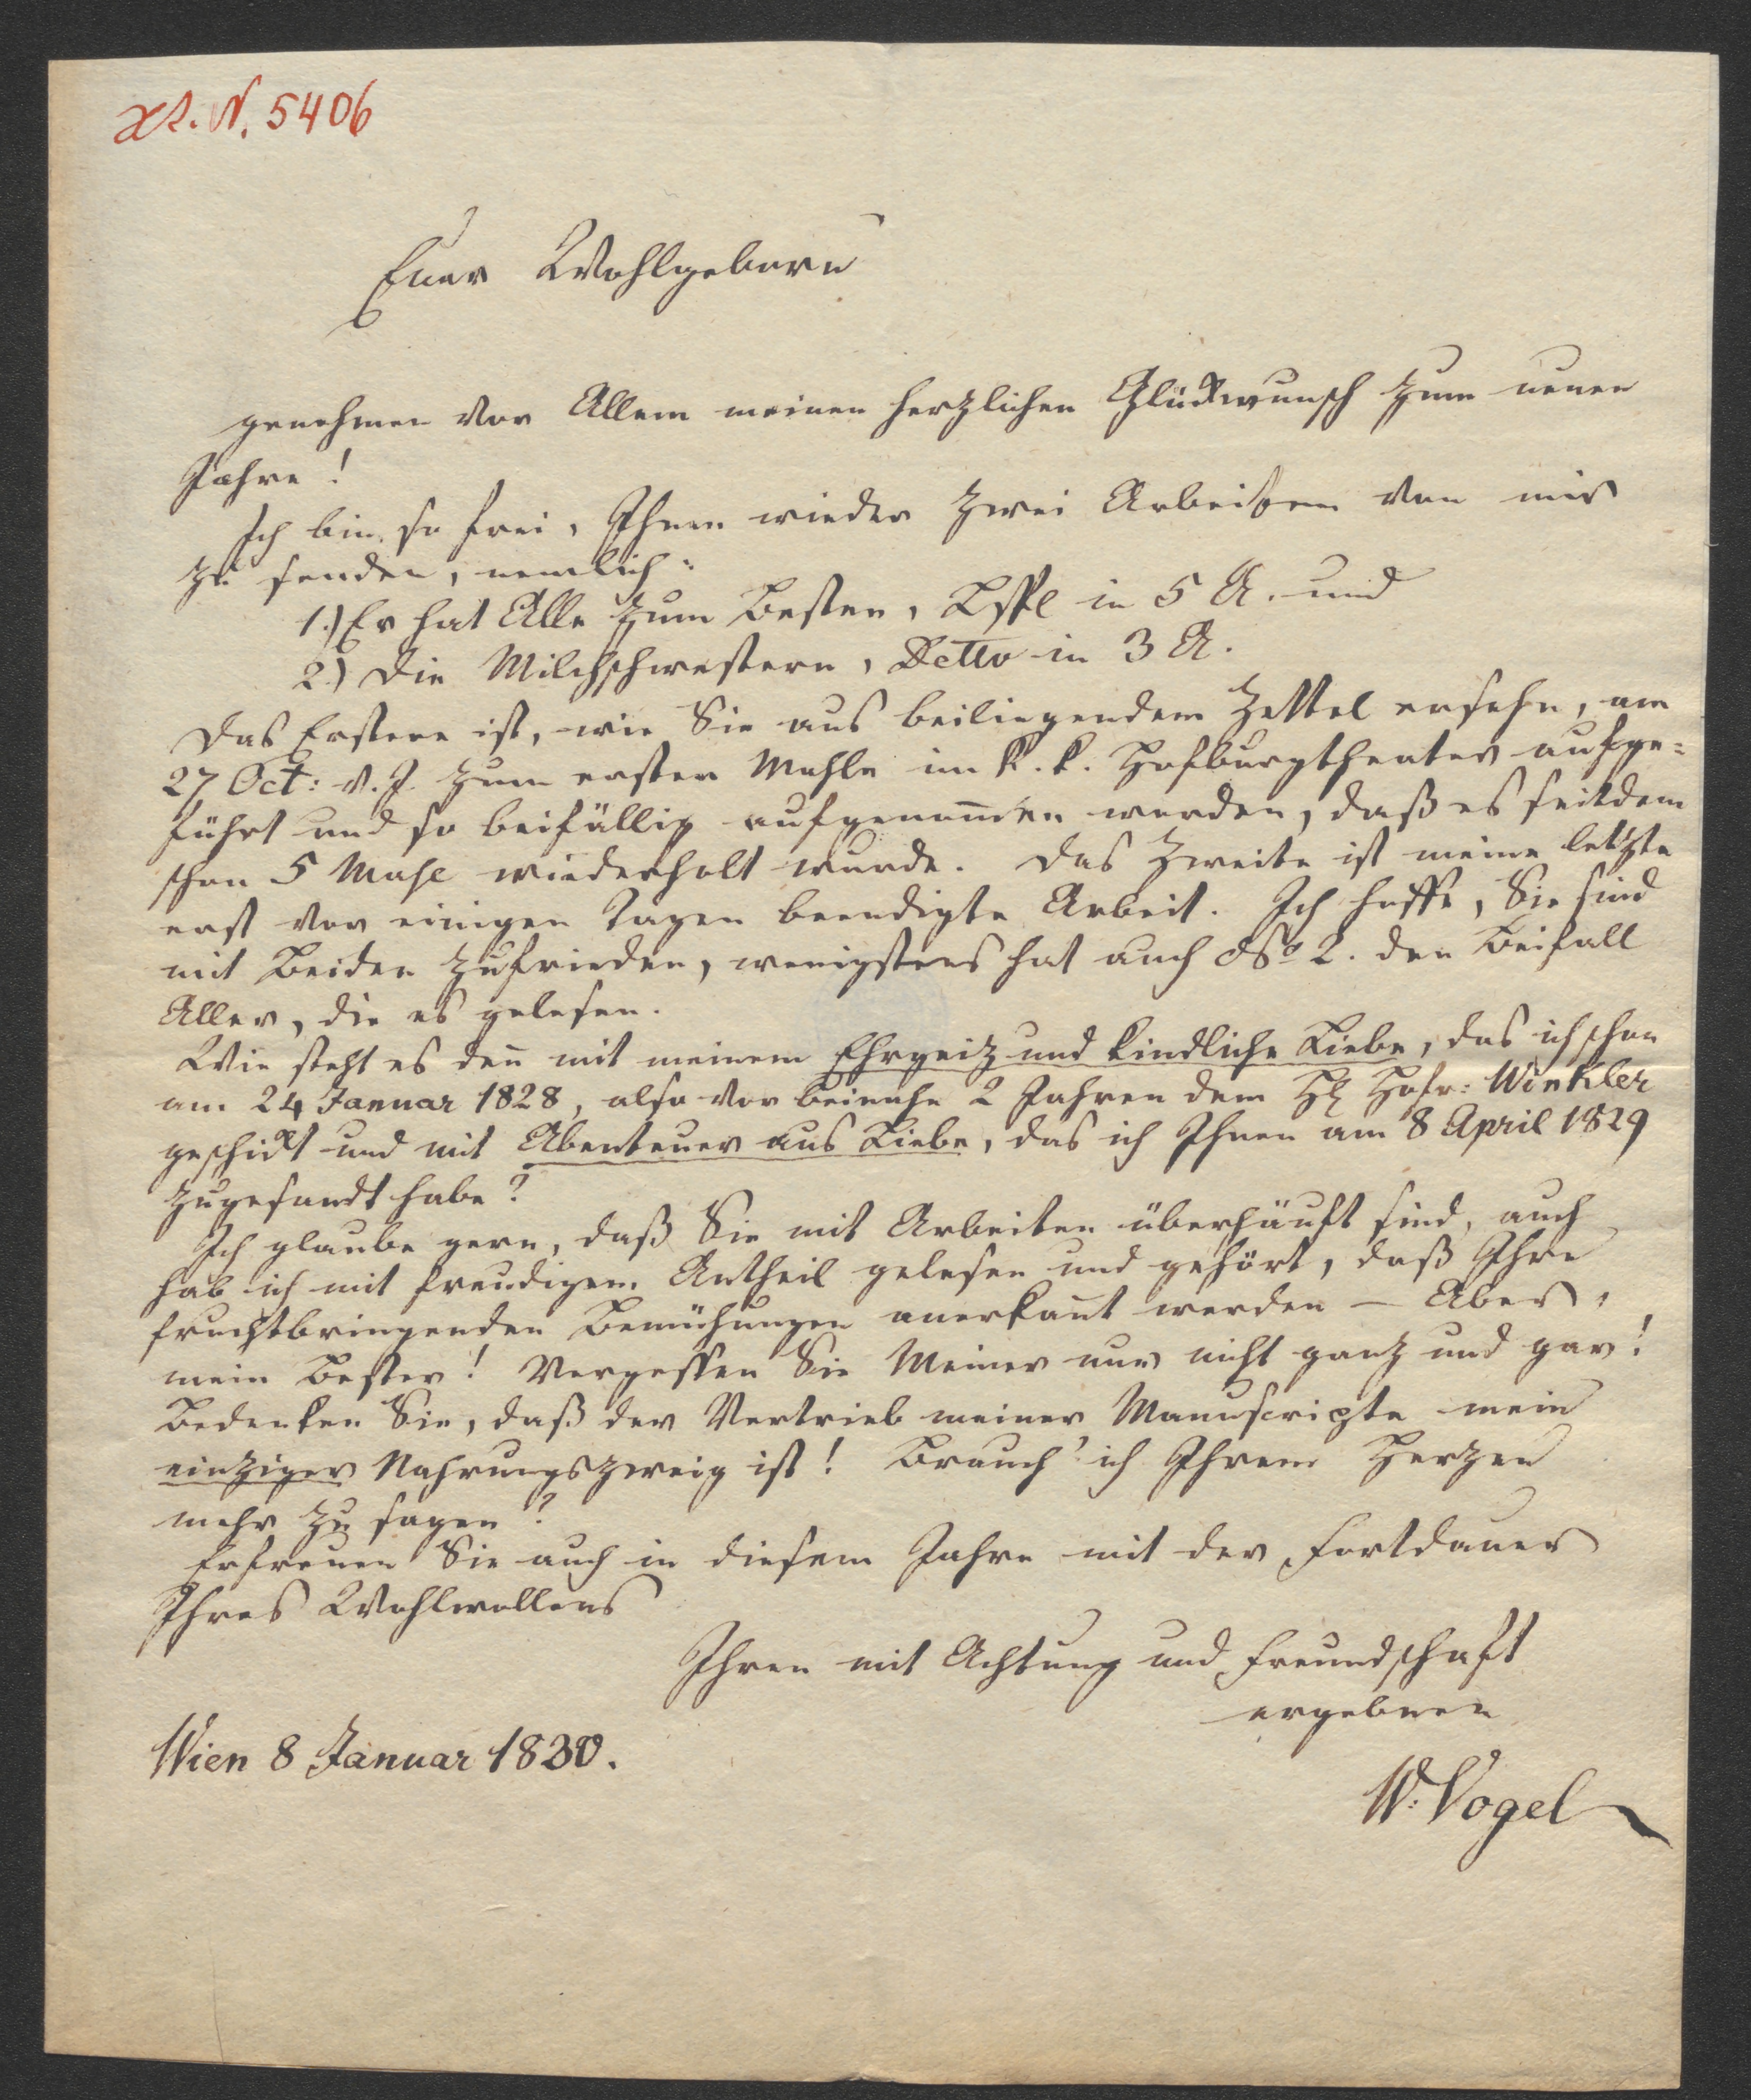 A. N. 5406
Euer Wohlgeborn
genehmen vor Allem meinen herzlichen Glückwunsch zum neuen
Jahre!
Ich bin so frei, Ihnen wieder zwei Arbeiten von mir
zu senden, nemlich:
1.) Er hat Alle zum Besten, Lspl in 5 A. und
2.) Die Milchschwestern, Detto in 3 A.
Das Erstere ist, wie Sie aus beiliegendem Zettel ersehn, am
27 Oct: v. J. zum ersten Mahle im k. k. Hofburgtheater aufge=
führt und so beifällig aufgenom̄en worden, daß es seitdem
schon 5 Mahl wiederholt wurde. Das Zweite ist meine letzte
erst vor einigen Tagen beendigte Arbeit. Ich hoffe, Sie sind
mit Beiden zufrieden, wenigstens hat auch No 2. den Beifall
Aller, die es gelesen.
Wie steht es den̄ mit meinem Ehrgeiz und kindliche Liebe, das ich schon
am 24 Januar 1828, also vor beinahe 2 Jahren dem H Hofr: Winkler
geschickt und mit Abenteuer aus Liebe, das ich Ihnen am 8 April 1829
zugesandt habe?
Ich glaube gern, daß Sie mit Arbeiten überhäuft sind, auch
hab ich mit freudigem Antheil gelesen und gehört, daß Ihre
fruchtbringenden Bemühungen anerkan̄t werden – Aber,
mein Bester! Vergessen Sie Meiner nur nicht ganz und gar!
Bedenken Sie, daß der Vertrieb meiner Manuscripte mein
einziger Nahrungszweig ist! Brauch' ich Ihrem Herzen
mehr zu sagen?
Erfreuen Sie auch in diesem Jahre mit der Fortdauer
Ihres Wohlwollens
Ihren mit Achtung und Freundschaft
ergebnen
Wien 8 Januar 1830.
W. Vogel